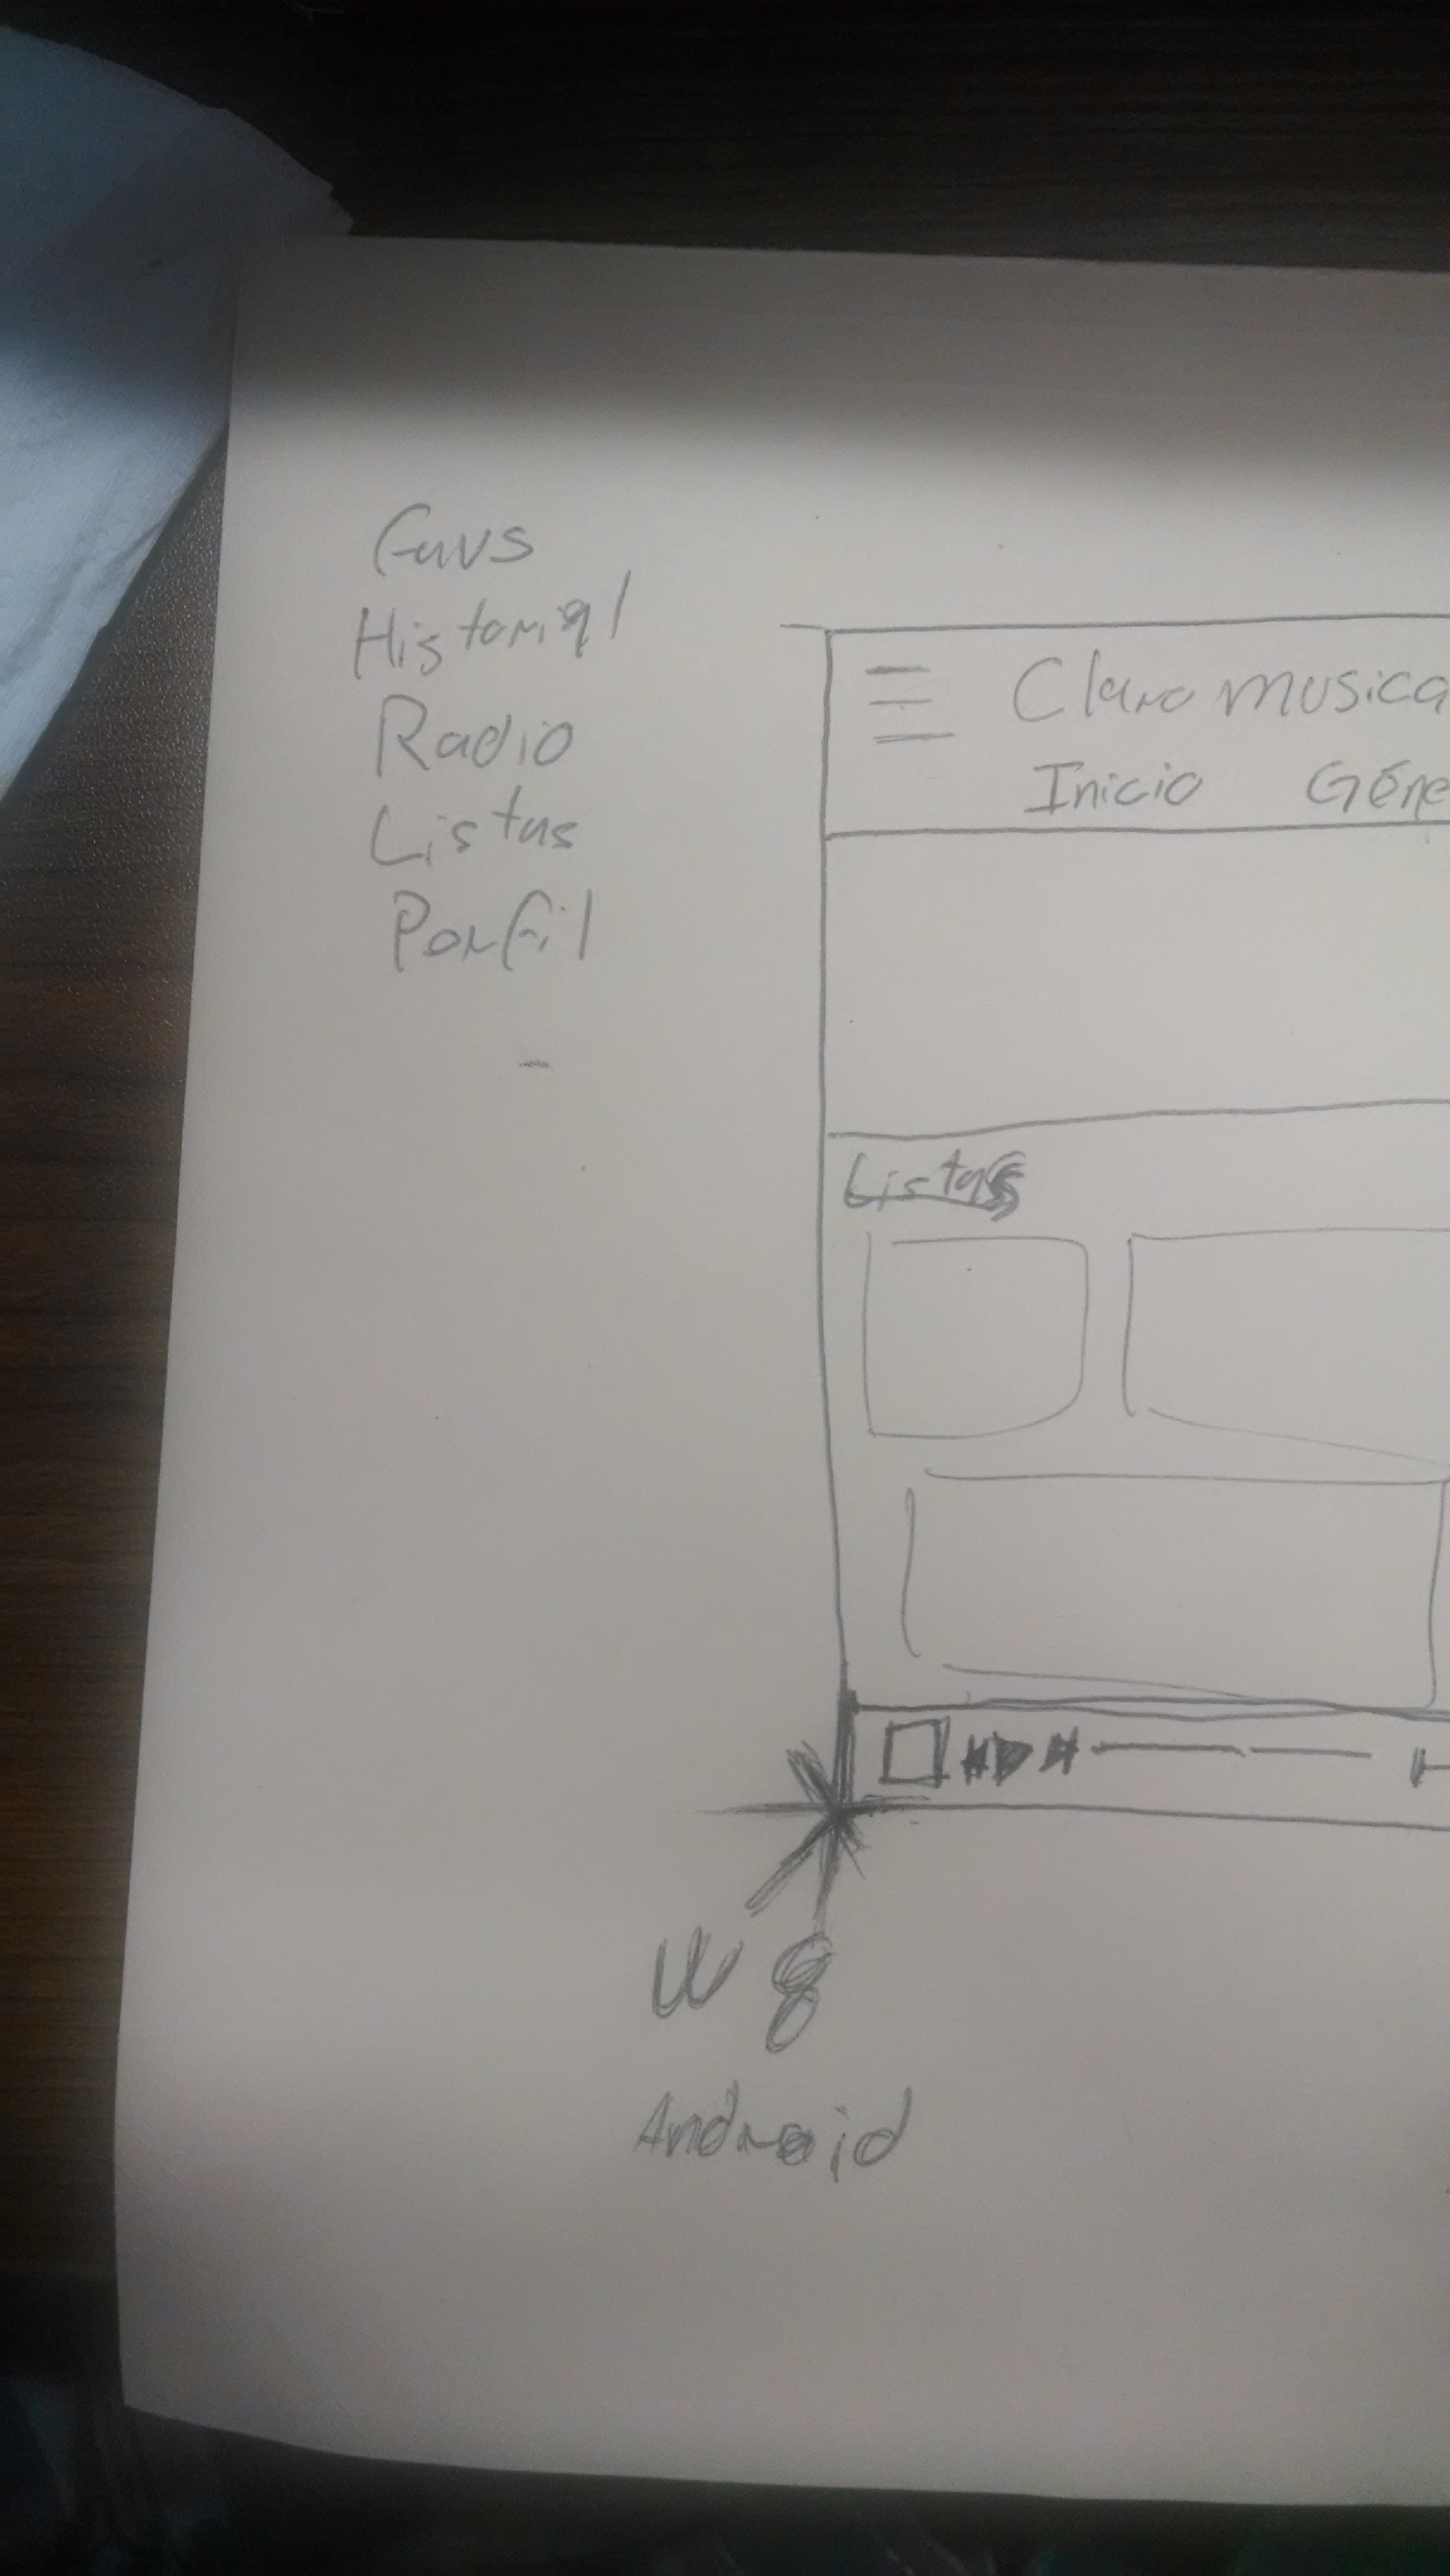 Favs
Historial
Radio
Listas
Perfil
Claro musica
Inicio Géne
Listas
W 8
Android